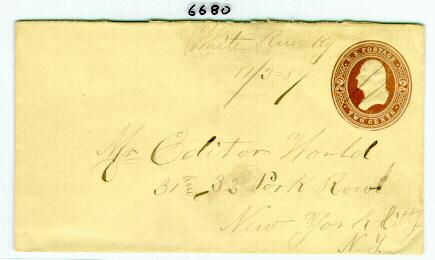 6680
White Run Ky
11/3-87
U.S. POSTAGE
TWO CENTS
Mr. Editor World
31 and 32 Park Row
New York City
N.Y.